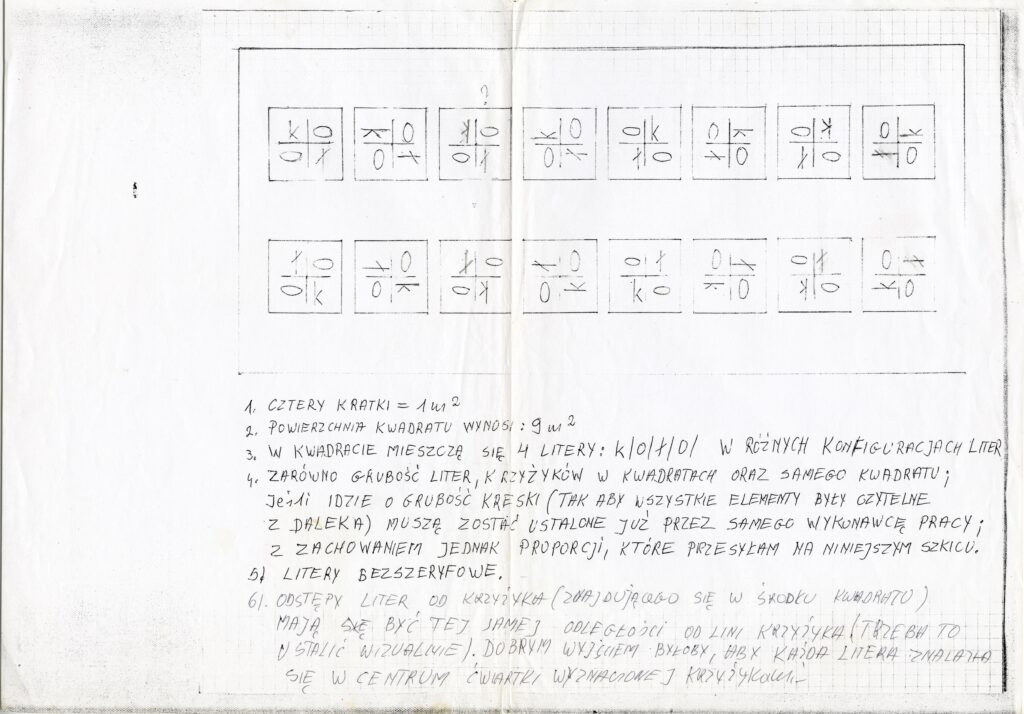 ?
k O k O k O k O O k O k O k O k
O ł O ł O ł O ł ł O ł O ł O ł O
ł O ł O ł O ł O O ł O ł O ł O ł
O k O k O k O k k O k O k O k O
1. CZTERY KRATKI = 1 m²
2. POWIERZCHNIA KWADRATU WYNOSI: 9 m²
3. W KWADRACIE MIESZCZĄ SIĘ 4 LITERY: k/O/ł/O/ W RÓŻNYCH KONFIGURACJACH LITER
4. ZARÓWNO GRUBOŚĆ LITER, KRZYŻYKÓW W KWADRATACH ORAZ SAMEGO KWADRATU;
JEŚLI IDZIE O GRUBOŚĆ KRESKI (TAK ABY WSZYSTKIE ELEMENTY BYŁY CZYTELNE
Z DALEKA) MUSZĄ ZOSTAĆ USTALONE JUŻ PRZEZ SAMEGO WYKONAWCĘ PRACY;
Z ZACHOWANIEM JEDNAK PROPORCJI, KTÓRE PRZESYŁAM NA NINIEJSZYM SZKICU.
5/ LITERY BEZSZERYFOWE.
6/. ODSTĘPY LITER OD KRZYŻYKA (ZNAJDUJĄCEGO SIĘ W ŚRODKU KWADRATU)
MAJĄ SIĘ BYĆ TEJ SAMEJ ODLEGŁOŚCI OD LINI KRZYŻYKA (TRZEBA TO
USTALIĆ WIZUALNIE). DOBRYM WYJŚCIEM BYŁOBY, ABY KAŻDA LITERA ZNALAZŁA
SIĘ W CENTRUM ĆWIARTKI WYZNACZONEJ KRZYŻYKAMI